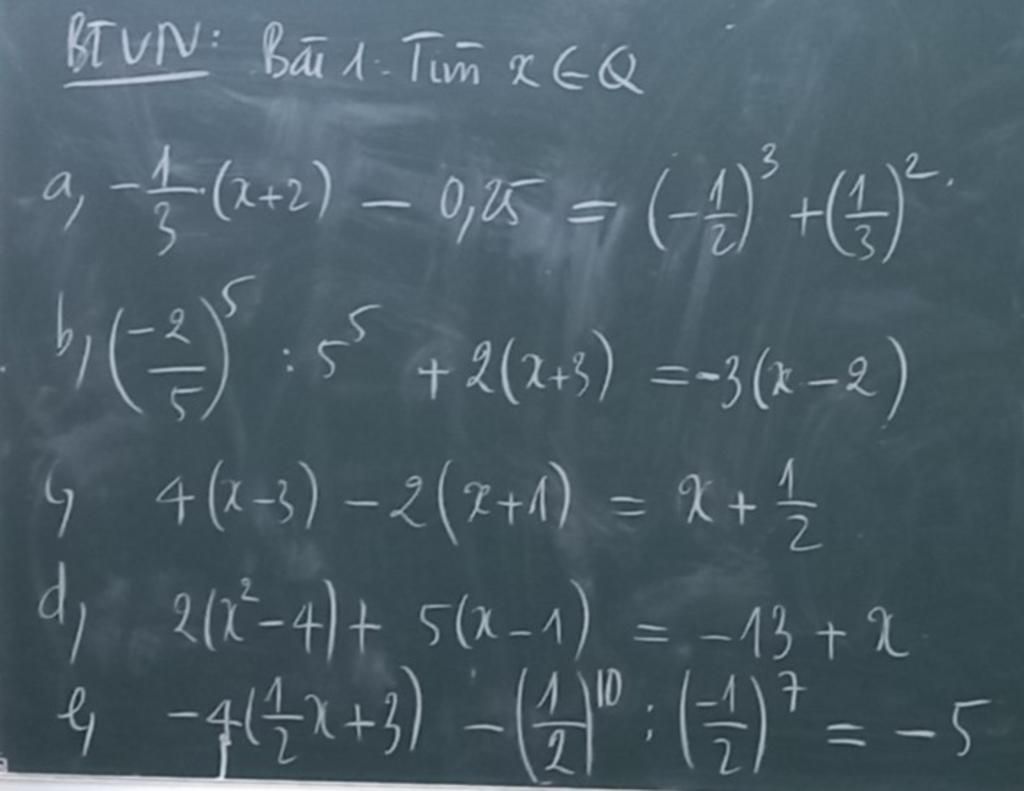 BTVN: Bài 1: Tìm x ∈ Q
a, -1/3·(x+2) - 0,25 = (-1/2)^3 + (1/3)^2.
b, (-2/5)^5 : 5^5 + 2(x+3) = -3(x-2)
c, 4(x-3) - 2(x+1) = x + 1/2
d, 2(x^2-4) + 5(x-1) = -13 + x
e, -4(1/2x+3) - (1/2)^10 : (-1/2)^7 = -5